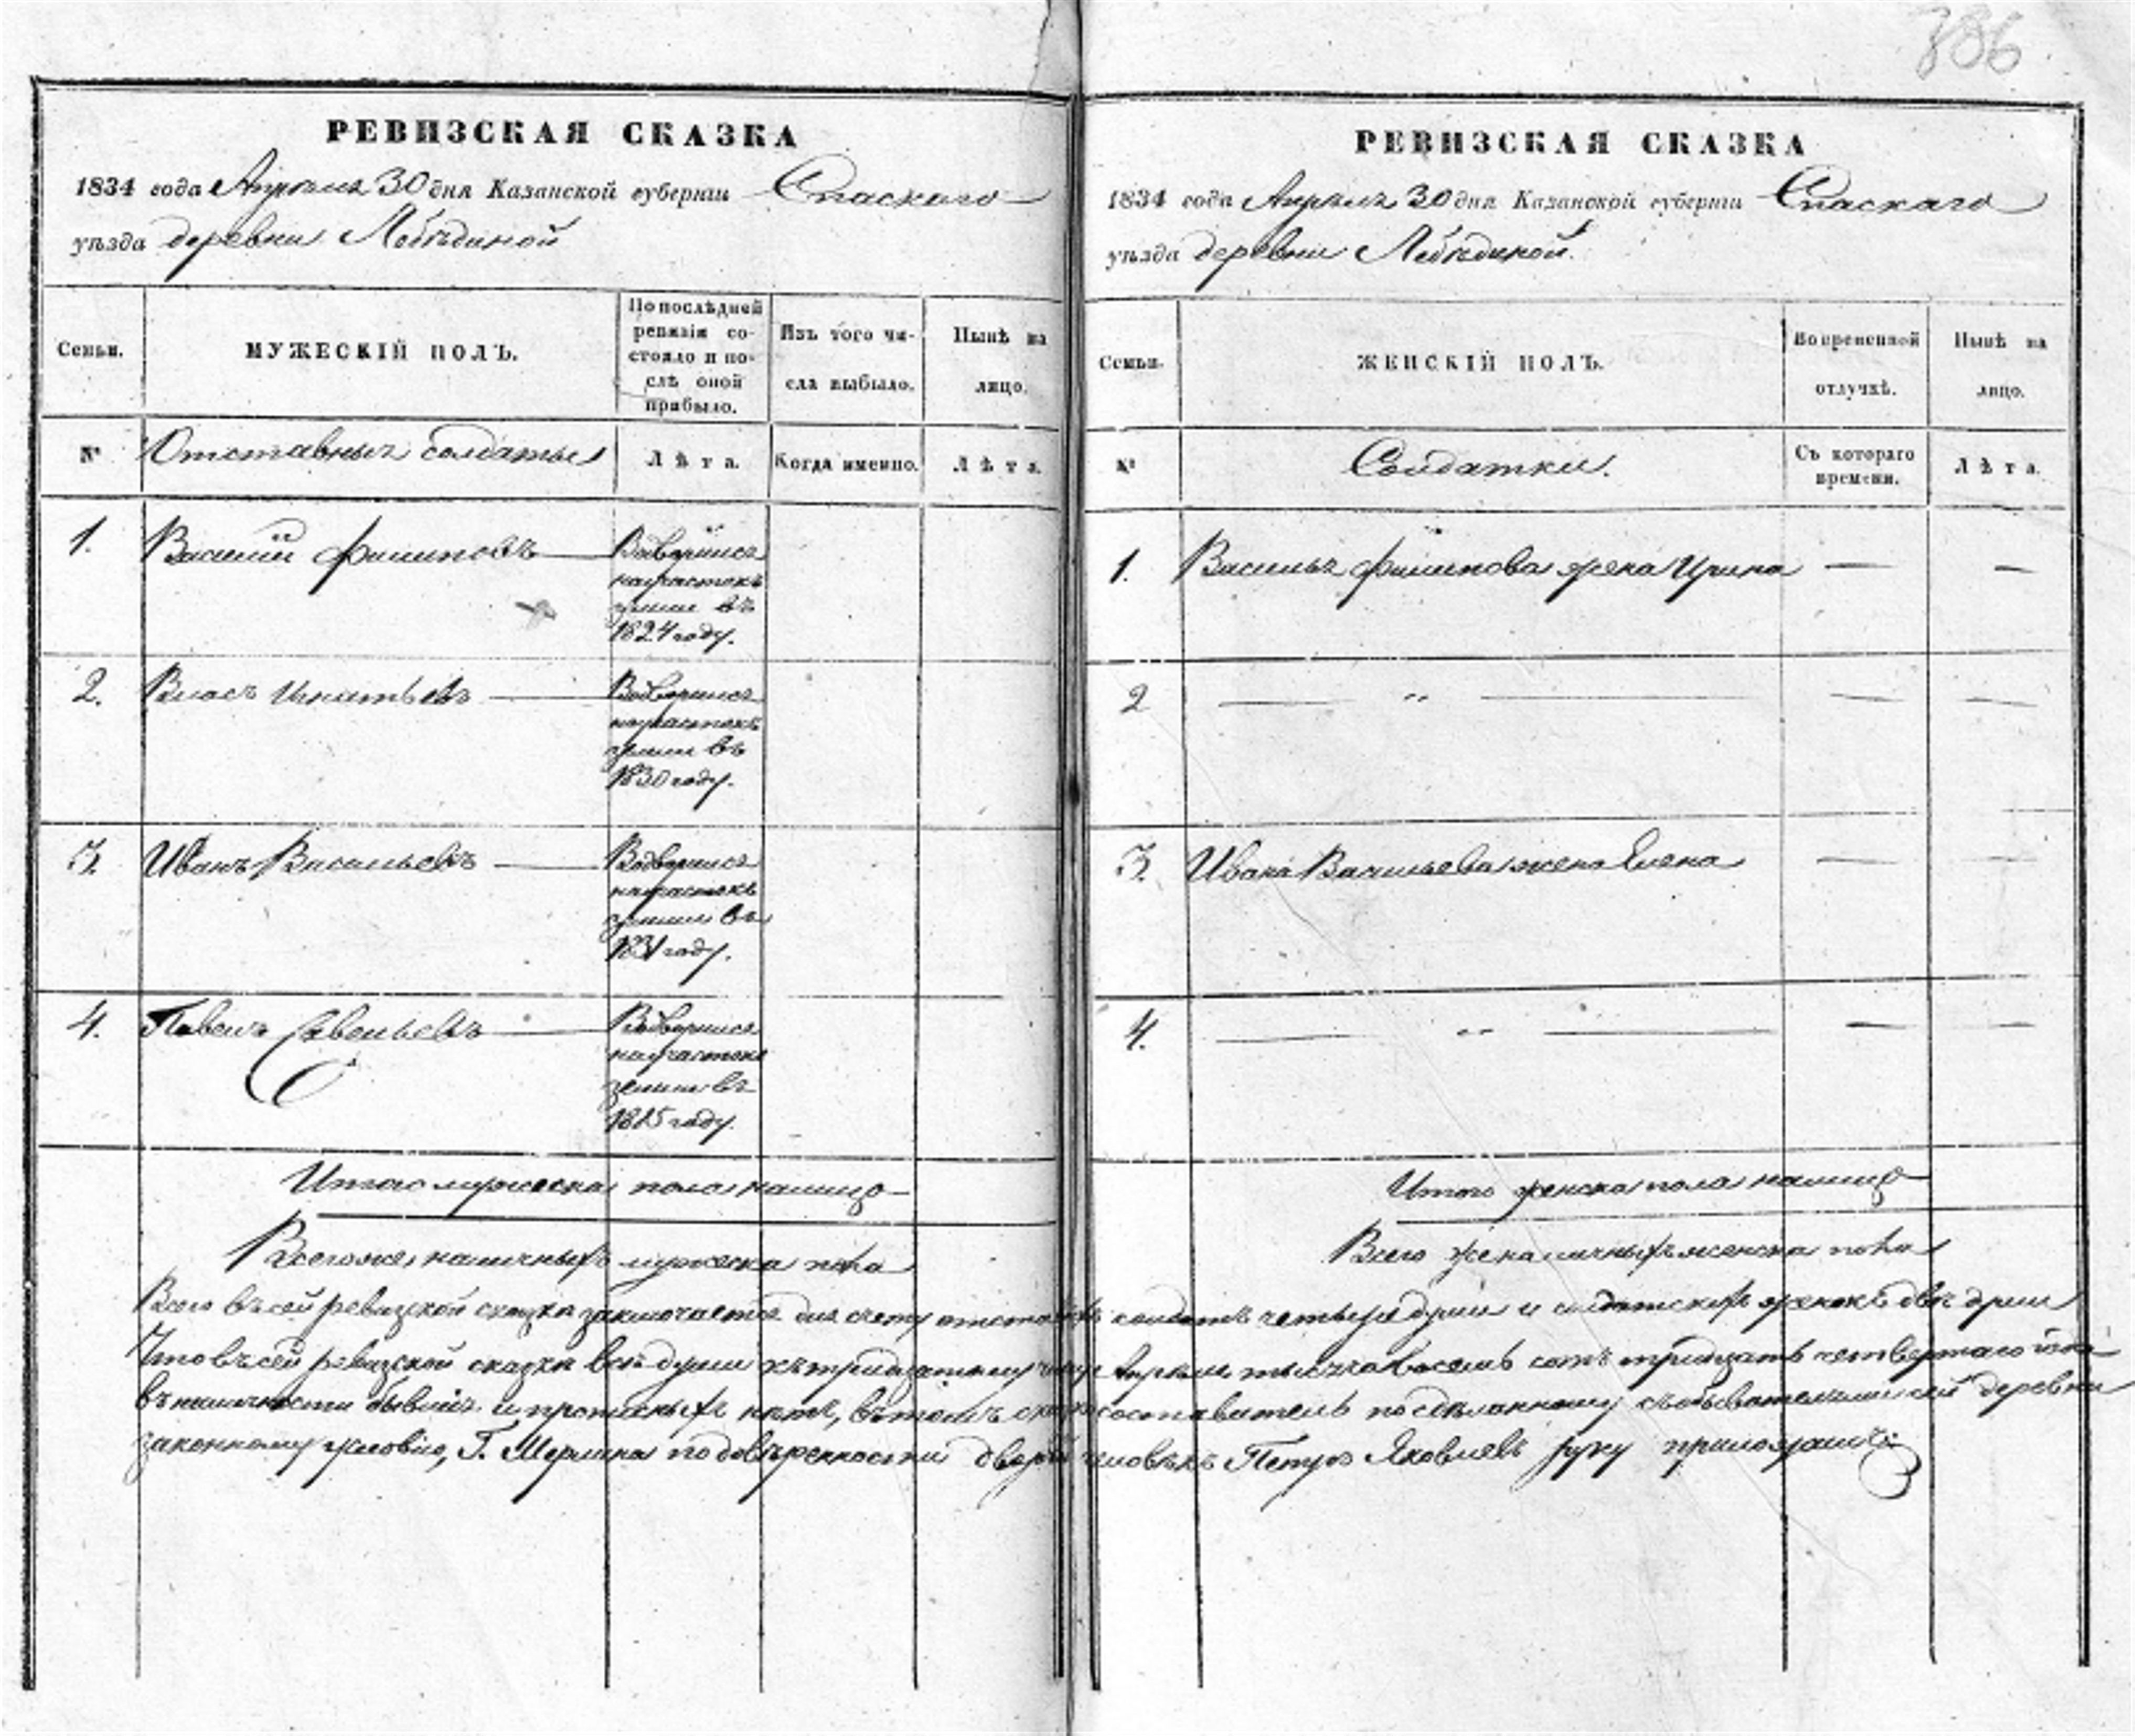 386
РЕВИЗСКАЯ СКАЗКА
1834 года Апреля 30 дня Казанской губернии Спаскаго
уѣзда деревни Лебѣдиной
Семьи.
МУЖЕСКІЙ ПОЛЪ.
По послѣдней
ревизіи со-
стояло и по-
слѣ оной
прибыло.
Изъ того чи-
сла выбыло.
Нынѣ на
лицо.
№
Отставные солдаты
Лѣта.
Когда именно.
Лѣта.
1.
Василий Филиповъ
Водворился
на участокъ
земли въ
1824 году.
2.
Власъ Игнатьевъ
Водворился
на участокъ
земли въ
1830 году.
3.
Иванъ Васильевъ
Водворился
на участокъ
земли въ
1831 году.
4.
Павелъ Савельевъ
Водворился
на участокъ
земли въ
1825 году.
Итого мужеска пола налицо
Всего же наличныхъ мужеска пола
РЕВИЗСКАЯ СКАЗКА
1834 года Апреля 30 дня Казанской губернии Спаскаго
уѣзда деревни Лебѣдиной.
Семьи.
ЖЕНСКІЙ ПОЛЪ.
Во временной
отлучкѣ.
Нынѣ на
лицо.
№
Солдатки.
Съ котораго
времени.
Лѣта.
1.
Василья Филипова жена Ирина
2
3.
Ивана Васильева жена Елена
4.
Итого женска пола налицо
Всего же наличныхъ женска пола
Всего въ сей ревизской сказке заключается для счету солдатъ четыре души и солдатскихъ женокъ двѣ души
Что въ сей ревизской сказке всѣ души къ тридцатому числу Апреля тысяча восемь сотъ тридцать четвертаго года
въ наличности бывшие и прописныхъ нѣтъ, въ томъ составитель по сдѣланному съ обывателями сей деревни
законному условію, Г. Мерлина по довѣренности человѣкъ Петръ Яковлевъ руку приложилъ